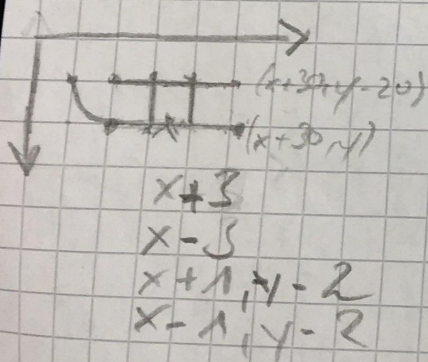 (x+30, y-20)
(x+30, y)
x+3
x-3
x+1, y-2
x-1, y-2